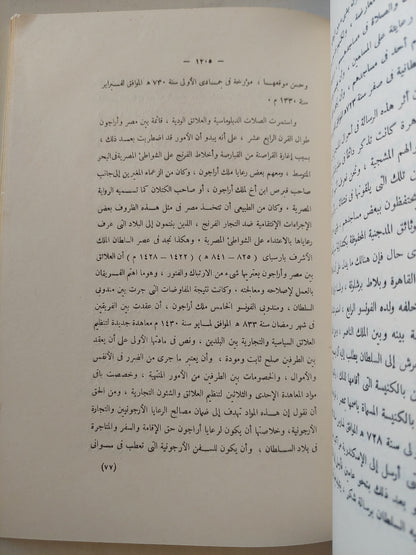 — ١٢٠٥ —
وحسن موقعهـا ، مؤرخة فى جمـادى الأولى سنة ٧٣٠ ه الموافق لفبراير
سنة ١٣٣٠ م ٠
واستمرت الصلات الدبلوماسية والعلائق الودية ، قائمة بين مصر وأراجون
طوال القرن الرابع عشر ، على أنه يبدو أن الأمور قد اضطربت بعد ذلك ،
بسبب إغارة القراصنة من القبارصة وأخلاط الفرنج على الشواطئ المصرية بالبحر
المتوسط ، ومعهم بعض رعايا ملك أراجون ، وكان من الزعماء المغيرين إلى جانب
صاحب قبرص ابن أخ ملك أراجون ، أو صاحب الكتلان كما تسميه الرواية
المصرية ٠ وكان من الطبيعى أن تتخذ مصر فى مثل هذه الظروف بعض
الإجراءات الإنتقامية ضد التجار الفرنج ، الذين ينتمون إلى البلاد التى عرف
رعاياها بالاعتداء على الشواطئ المصرية ٠ وهكذا نجد فى عصر السلطان الملك
الأشرف بارسباى ( ٨٢٥ – ٨٤١ ه ) ( ١٤٢٢ – ١٤٢٨ م ) أن العلائق
بين مصر وأراجون يعتريها شىء من الارتباك والفتور ، وهوما اهتم الفريقان
بالعمل لإصلاحه ومعالجته ٠ وكانت نتيجة المفاوضات التى جرت بين مندوبى
السلطان ، ومندوبى ألفونسو الخامس ملك أراجون ، أن عقدت بين الفريقين
فى شهر رمضان سنة ٨٣٣ ه الموافق لمـايو سنة ١٤٣٠ م معاهدة جديدة لتنظيم
العلائق السياسية والتجارية بين البلدين ، ونص فى مادتها الأولى على أن يعقد
بين الطرفين صلح ثابت ومودة ، وأن يعتبر ما جرى من الضرر فى الأنفس
والأموال ، والخصومات بين الطرفين من الأمور المنتهية ، وخصصت باقى
مواد المعاهدة الإحدى والثلاثين لتنظيم العلائق والشئون التجارية ٠ ومن الحق
أن نقول إن هذه المواد تهدف إلى ضمان مصالح الرعايا الأرجونيين والتجارة
الأرجونية، وخلاصتها أن يكون لرعايا أراجون حق الإقامة والسفر والمتاجرة
فى بلاد السـلطان ، وأن يكون للسـفن الأرجونية التى تعطب فى مـوانى
(٧٧)